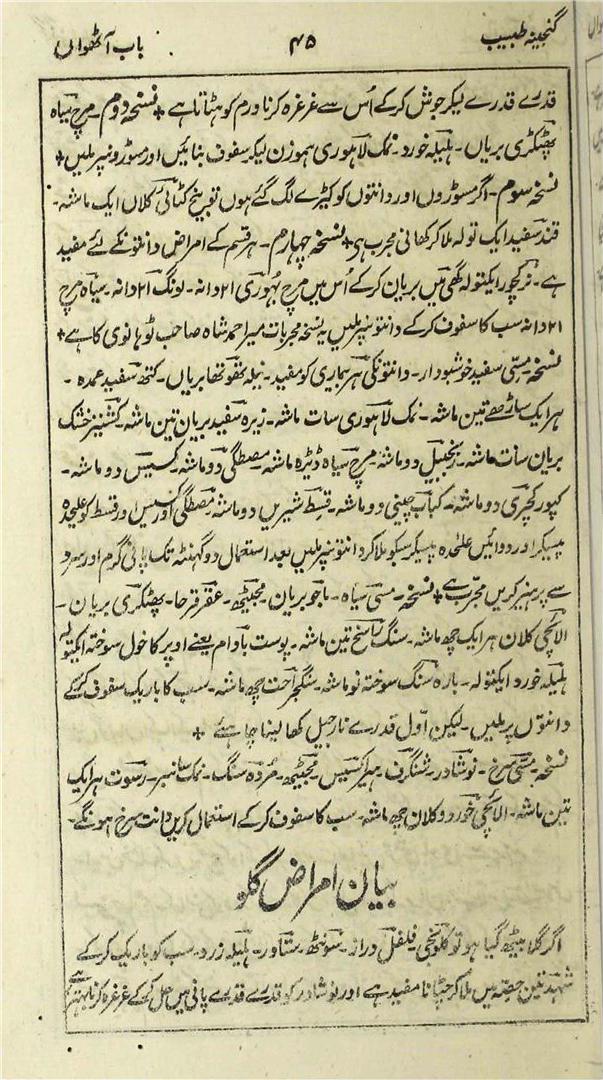 گنجینہ طبیب ۴۵ باب آٹھواں
قدرے قدرے لیکر جوش کرکے اُس سے غرغرہ کرنا ورم کو ہٹاتا ہے + نسخہ دوم۔ مرچ سیاہ
پھٹکڑی بریاں۔ ہلیلہ خورد۔ نمک لاہوری ہموزن لیکر سفوف بنائیں اور مسوڑونپر ملیں +
نسخہ سوم۔ اگر مسوڑوں اور دانتوں کو کیڑے لگ گئے ہوں تو بیخ کٹائی کلاں ایک ماشہ۔
قند سفید ایک تولہ ملا کر کھانی مجرب ہی + نسخہ چہارم۔ ہر قسم کے امراض دانتونکے لئے مفید
ہے۔ نرکچور ایکتولہ گھی میں بریان کرکے اُس میں مرچ بہُوری ۲۱ دانہ۔ لونگ ۲۱ دانہ۔ سیاہ مرچ
۲۱ دانہ سب کا سفوف کرکے دانتونپر ملیں یہ نسخہ مجربات میر احمد شاہ صاحب ٹوہانوی کا ہے +
نسخہ مِسّی سفید خوشبودار۔ دانتونکی ہر بیماری کو مفید۔ نیلہ تھوتھا بریاں۔ کتھ سفید عمدہ۔
ہر ایک ساڑھے تین ماشہ۔ نمک لاہوری سات ماشہ۔ زیرہ سفید بریان تین ماشہ۔ کشنیز خشک
بریان سات ماشہ۔ زنجبیل دو ماشہ۔ مرچ سیاہ ڈیڑہ ماشہ۔ مصطگی دو ماشہ۔ کسیس دو ماشہ۔
کپور کچری دو ماشہ۔ کباب چینی دو ماشہ۔ قسط شیریں دو ماشہ مصطگی اور کسیس اور قسط کو علیٰحدہ
پیسکر اور دوائیں علٰحدہ پیسکر سبکو ملا کر دانتونپر ملیں بعد استعمال دو گہنٹہ تک پانی گرم اور سرد
سے پرہیز کریں مجرب ہے + نسخہ۔ مسی سیاہ۔ ماجو بریان۔ مجیٹھ۔ عقرقرحا۔ پھٹکڑی بریان۔
الائچی کلان ہر ایک چھ ماشہ۔ سنگ راسخ تین ماشہ۔ پوست بادام یعنے اوپر کا خول سوختہ ایکتولہ
ہلیلہ خورد ایکتولہ۔ بارہ سنگ سوختہ نو ماشہ۔ سنگجراحت چھ ماشہ۔ سب کا باریک سفوف کرکے
دانتوں پر ملیں۔ لیکن اوّل قدرے نارجیل کھا لینا چاہئے +
نسخہ۔ مسّی سرخ۔ نوشادر۔ شنگرف۔ ہیرا کسیس۔ مجیٹھ۔ مُردہ سنگ۔ نمک سانبھر۔ رسوت ہر ایک
تین ماشہ۔ الائچی خورد و کلان چھ ماشہ۔ سب کا سفوف کرکے استعمال کریں دانت سرخ ہونگے۔
بیان امراض گلو
اگر گلا بیٹھ گیا ہو تو کلونجی فلفل دراز۔ سونٹھ۔ ستاور۔ ہلیلہ زرد۔ سب کو باریک کرکے
شہد تین حصہ میں ملا کر چٹانا مفید ہے اور نوشادر کو قدرے قدرے پانی میں حل کرکے غرغرہ کرنا بہتر ہے